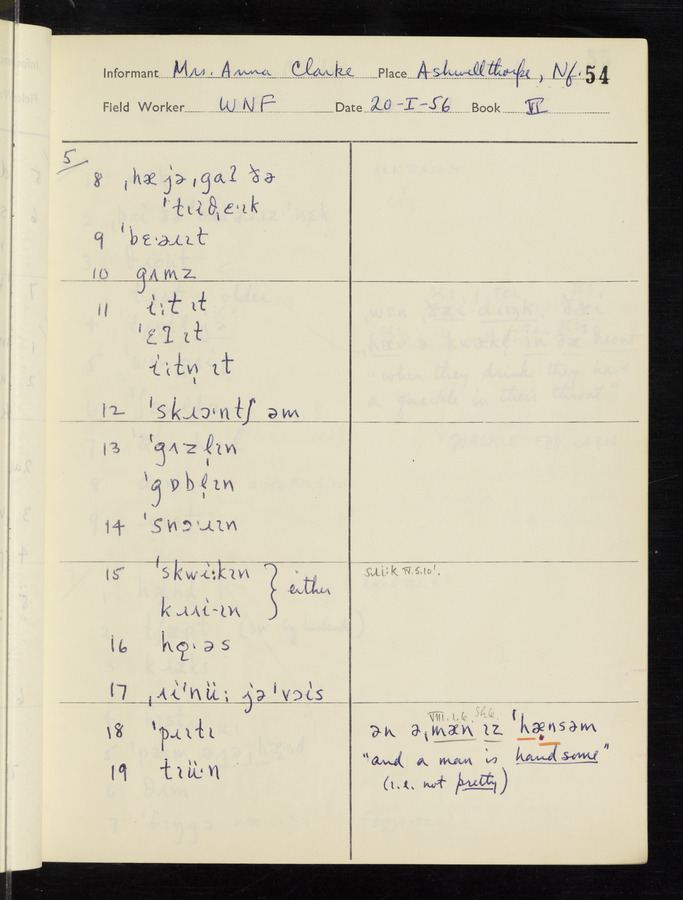 Informant Mrs. Anna Clarke Place Ashwellthorpe, Nf. 54
Field Worker WNF Date 20-I-56 Book VI
5
8 ˌhæ jə ˌgaʔ ðə
ˈtɹɪð ˌɛˑɪk
9 ˈbɛˑəɹɪt
10 gʌmz
11 iːt ɪt
ˈɛʔ ɪt
iːtn̩ ɪt
12 ˈskɹɔˑntʃ əm
13 ˈgʌzl̩ɪn
ˈgɒbl̩ɪn
14 ˈsnɔˑɹɪn
15 ˈskwiːkɪn } either
kɹɪi-ɪn
sɹiːk IV.5.10!.
16 hǫˑəs
17 ˌɹiˈnüː jə ˈvɔis
18 ˈpɹɪtɪ
19 tɪüˑn
VIII.1.6. Sh6.
ən əˌmæn ɪz ˈhænsəm
"and a man is handsome"
(i.e. not pretty)